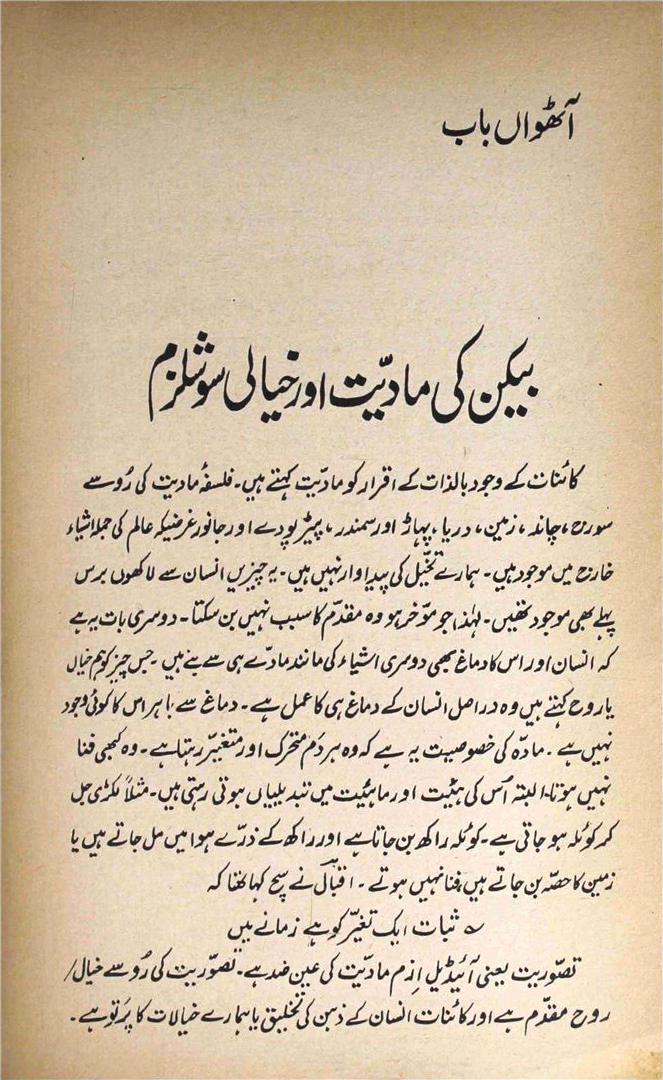 آٹھواں باب
بیکن کی مادیّت اور خیالی سوشلزم
کائنات کے وجود بالذات کے اقرار کو مادیّت کہتے ہیں۔ فلسفۂ مادیت کی رُو سے
سورج، چاند، زمین، دریا، پہاڑ اور سمندر، پیڑ پودے اور جانور غرضیکہ عالم کی جملہ اشیاء
خارج میں موجود ہیں۔ ہمارے تخیّل کی پیداوار نہیں ہیں۔ یہ چیزیں انسان سے لاکھوں برس
پہلے بھی موجود تھیں۔ لہٰذا جو موّخر ہو وہ مقدّم کا سبب نہیں بن سکتا۔ دوسری بات یہ ہے
کہ انسان اور اس کا دماغ بھی دوسری اشیاء کی مانند مادے ہی سے بنے ہیں۔ جس چیز کو ہم خیال
یا روح کہتے ہیں وہ دراصل انسان کے دماغ ہی کا عمل ہے۔ دماغ سے باہر اس کا کوئی وجود
نہیں ہے۔ مادّہ کی خصوصیت یہ ہے کہ وہ ہر دَم متحرک اور متغیّر رہتا ہے۔ وہ کبھی فنا
نہیں ہوتا۔ البتہ اُس کی ہیئت اور ماہیئت میں تبدیلیاں ہوتی رہتی ہیں۔ مثلاً لکڑی جل
کر کوئلہ ہو جاتی ہے۔ کوئلہ راکھ بن جاتا ہے اور راکھ کے ذرّے ہوا میں مل جاتے ہیں یا
زمین کا حصّہ بن جاتے ہیں، فنا نہیں ہوتے۔ اقبالؔ نے سچ کہا تھا کہ
؎ ثبات ایک تغیّر کو ہے زمانے میں
تصوّریت یعنی آئیڈیل اِزم مادیت کی عین ضد ہے۔ تصوّریت کی رُو سے خیال/
روح مقدّم ہے اور کائنات انسان کے ذہن کی تخلیق یا ہمارے خیالات کا پَرتَو ہے۔